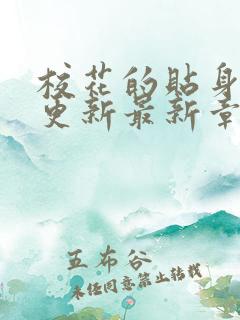 校花的贴身
更新最新章
五布谷
未经同意禁止转载